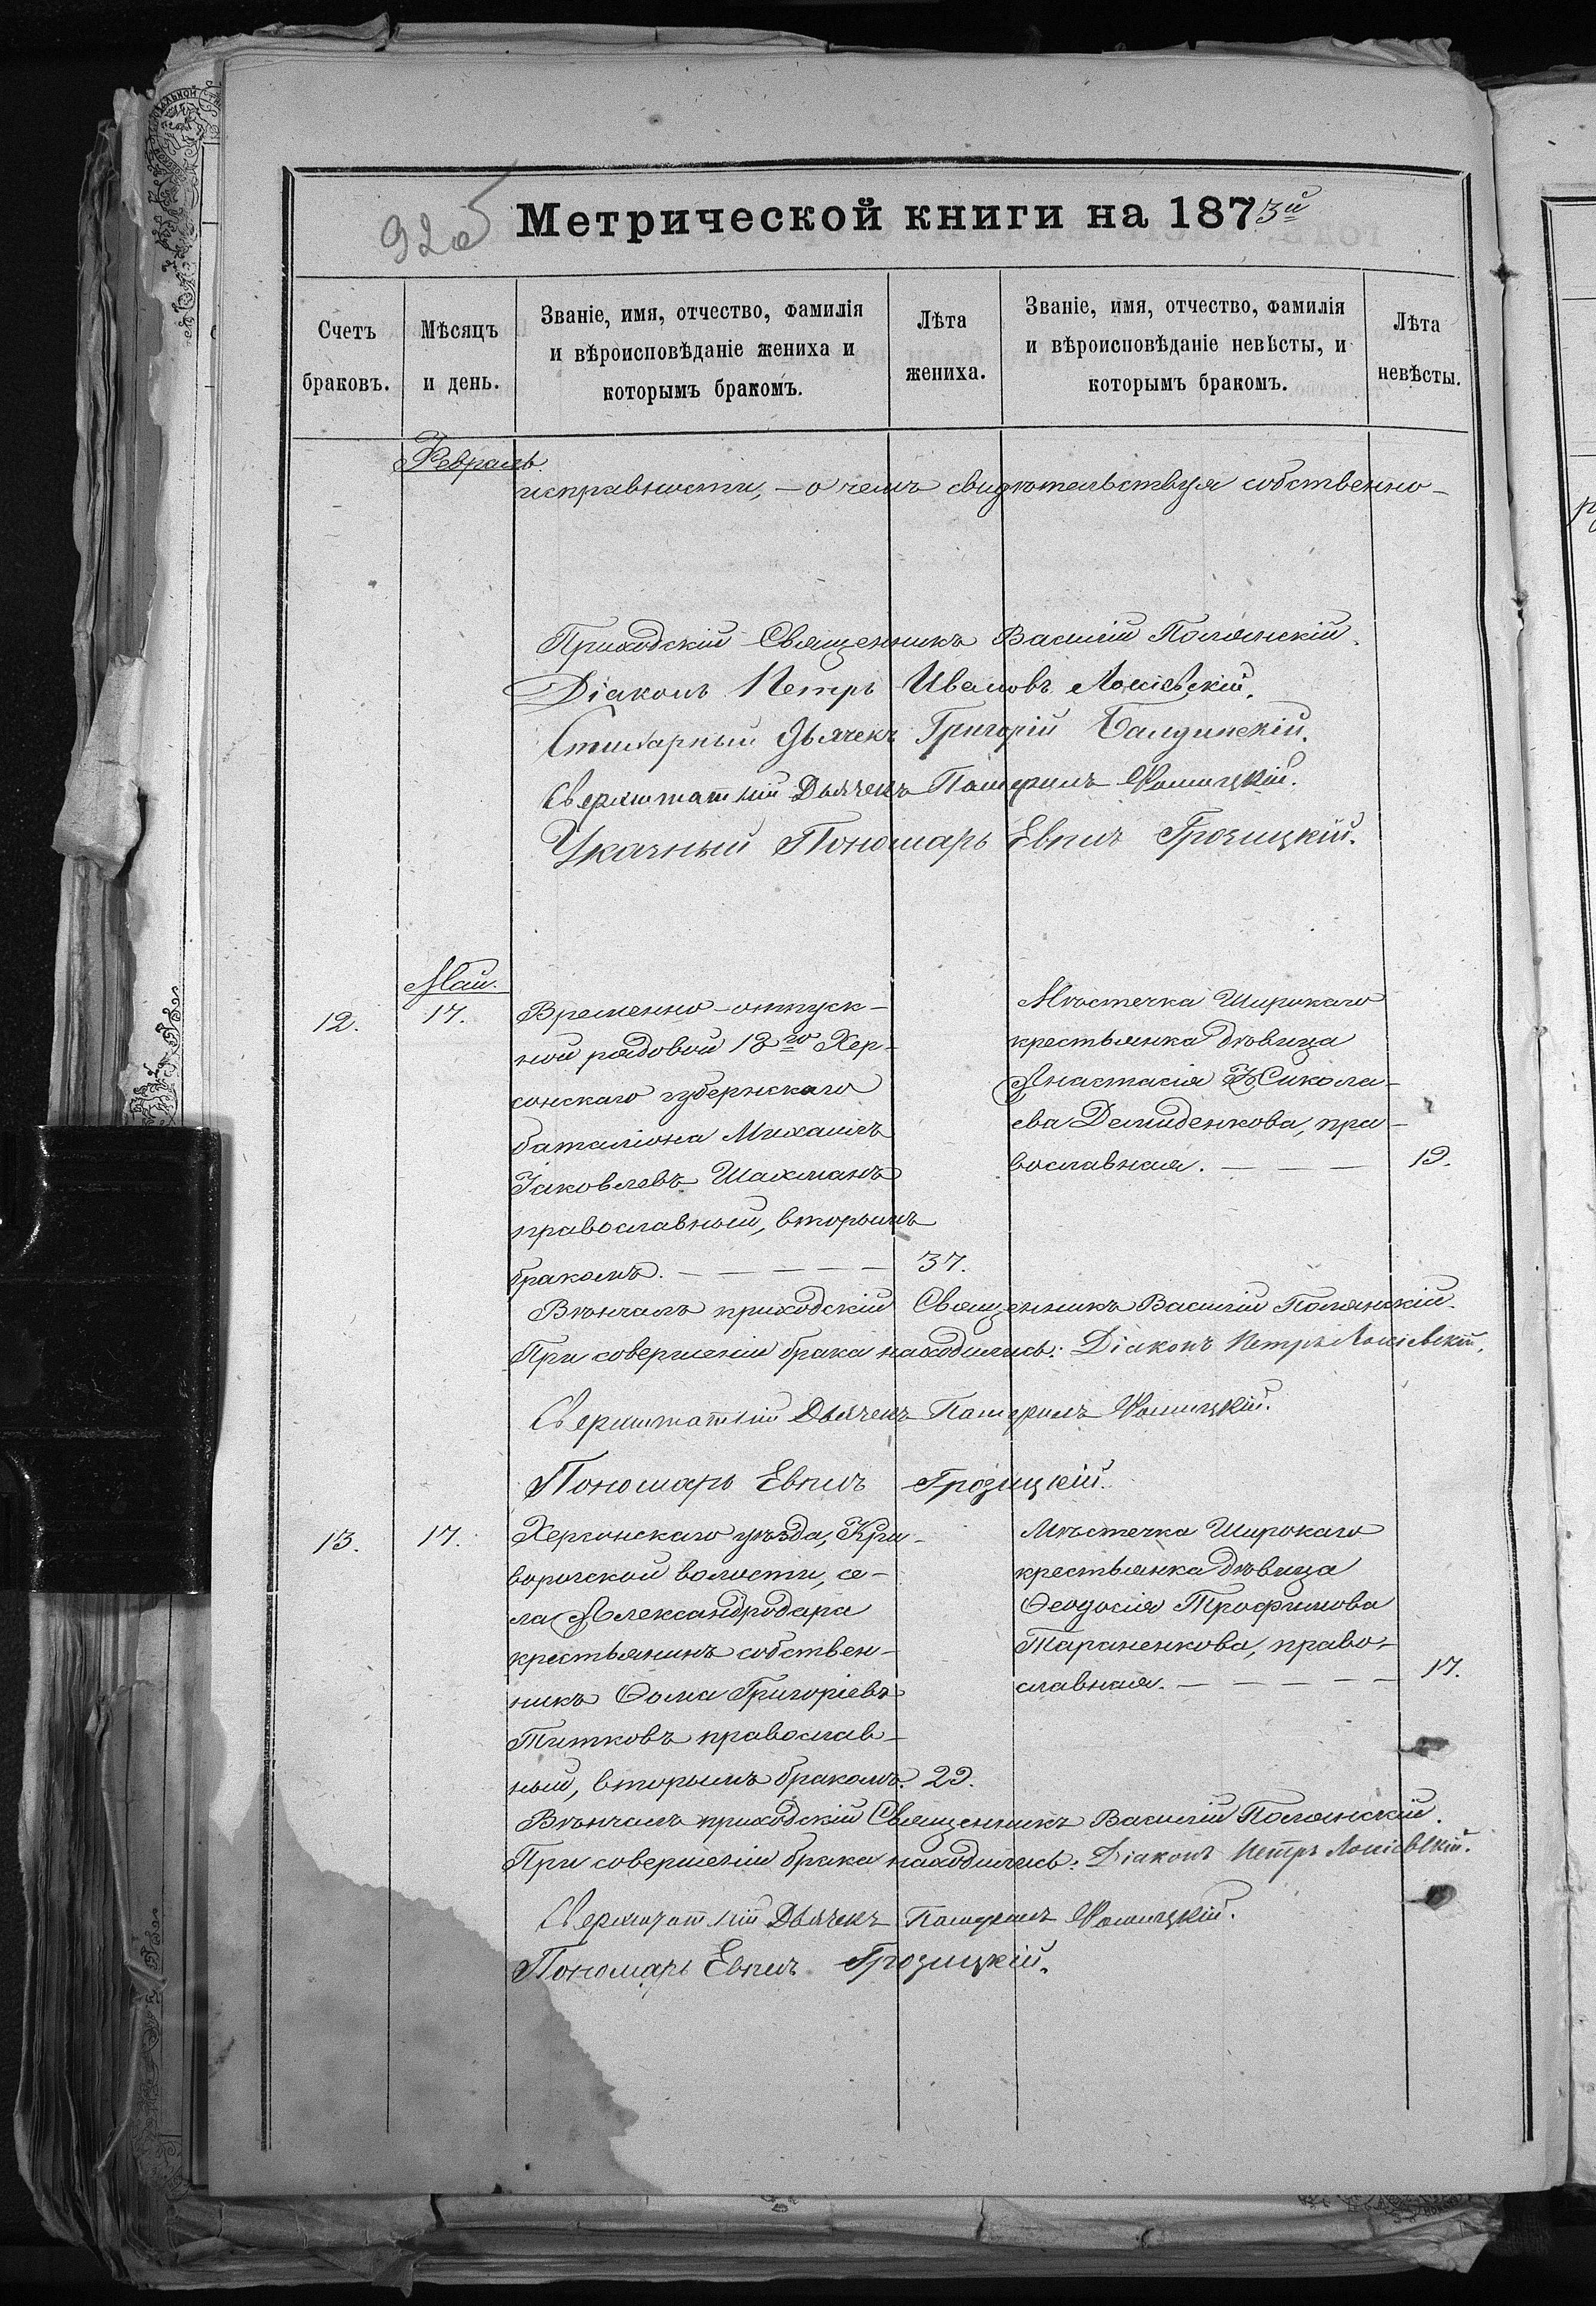 92об
Метрической книги на 1873й
Счетъ браковъ.
Мѣсяцъ и день.
Званіе, имя, отчество, фамилія
и вѣроисповѣданіе жениха и
которымъ бракомъ.
Лѣта жениха.
Званіе, имя, отчество, фамилія
и вѣроисповѣданіе невѣсты, и
которымъ бракомъ.
Лѣта невѣсты.
Февраль
исправности, — о чемъ свидѣтельствуя собственно-
Приходскій Священникъ Василій Полянскій.
Діаконъ Петръ Ивановъ
Дьячекъ Григорій
Сверхштатный Дьячекъ
Указный Пономарь Грозицкій.
Май.
12.
17.
Временно-отпуск-
ной рядовой 13го Хер-
сонскаго губернскаго
баталіона Михаилъ
Іаковлевъ Шахманъ
православный, вторымъ
бракомъ. — — — — —
37.
Мѣстечка Широкаго
крестьянка дѣвица
Анастасія Никола-
ева Демиденкова, пра-
вославная. — — —
19.
Вѣнчалъ приходскій Священникъ Василій Полянскій.
При совершеніи брака находились: Діаконъ Петръ
Сверхштатный Дьячекъ
Пономарь Грозицкій.
13.
17.
Херсонскаго уѣзда, Кри-
ворогской волости, се-
ла Александродара
крестьянинъ собствен-
никъ Ѳома Григоріевъ
Титковъ православ-
ный, вторымъ бракомъ.
29.
Мѣстечка Широкаго
крестьянка дѣвица
Ѳеодосія Трофимова
Тараненкова, право-
славная. — — — — —
17.
Вѣнчалъ приходскій Священникъ Василій Полянскій.
При совершеніи брака находились: Діаконъ Петръ
Сверхштатный Дьячекъ
Пономарь Грозицкій.